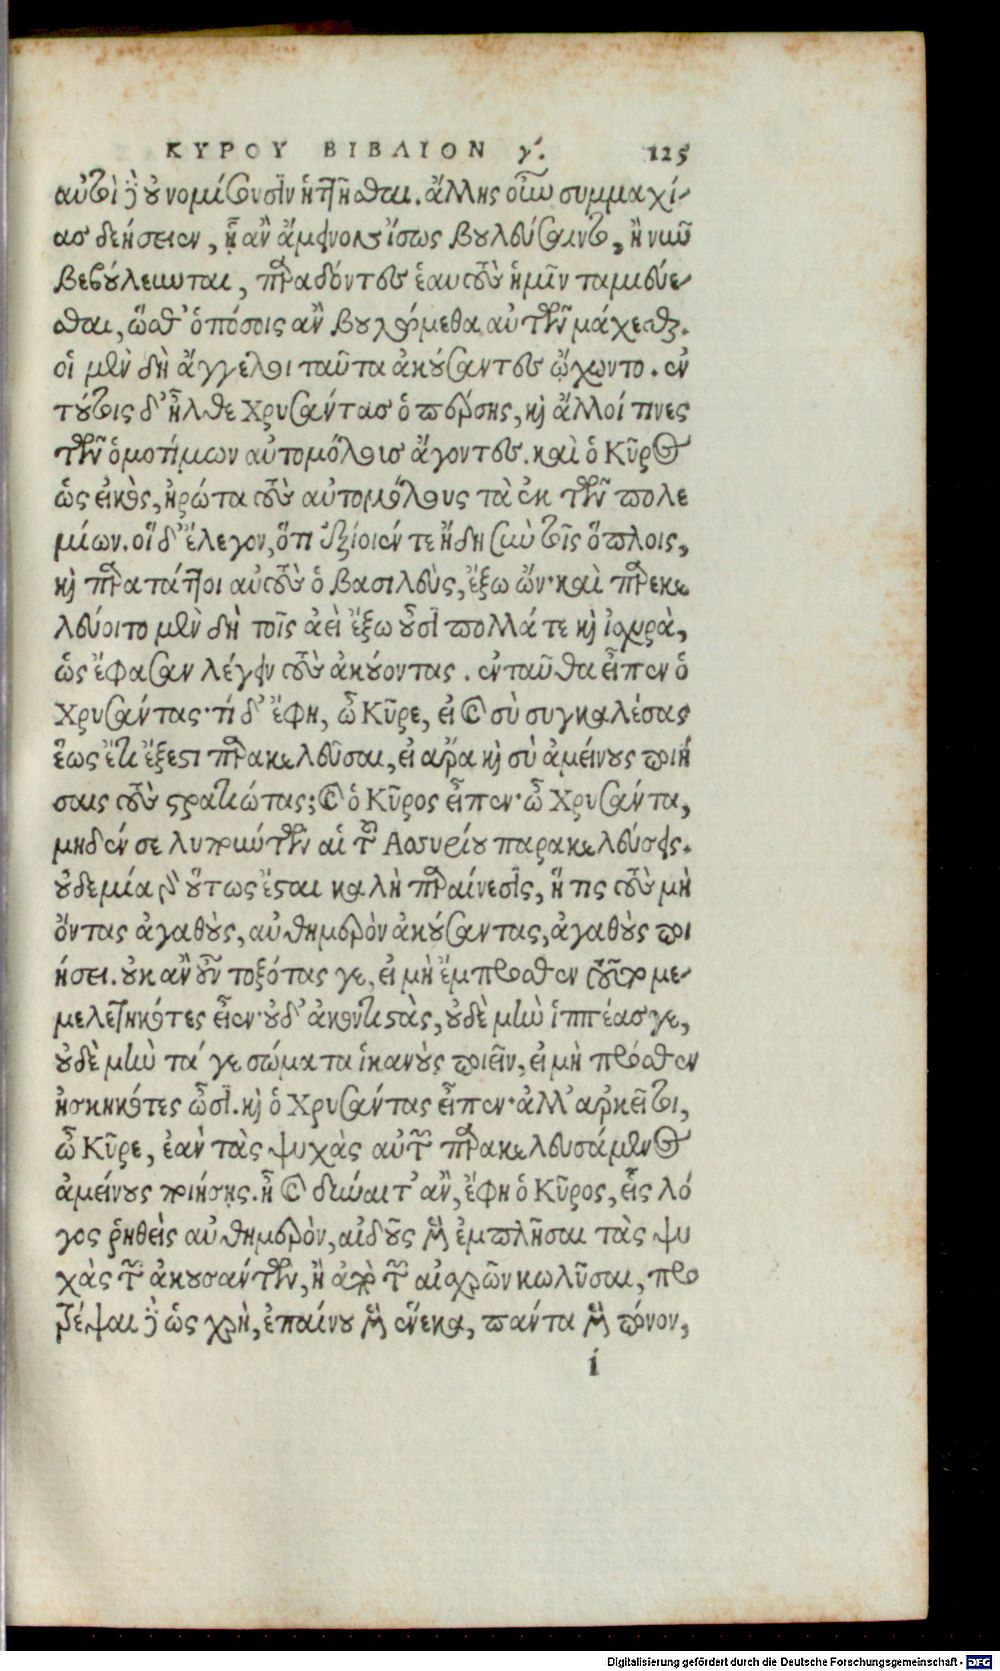 ΚΥΡΟΥ ΒΙΒΛΙΟΝ γ΄. 125
αὐτοὶ δ' οὐ νομίζουσιν ἡττῆσθαι. ἄλλης οἴου συμμαχί-
ας δεήσειεν, ἢ ἂν ἄμεινον ἴσως βουλεύσαιντο, ἢ νῦν
βεβούλευνται, παραδόντες ἑαυτοὺς ἡμῖν ταμιεύε-
σθαι, ὥσθ' ὁπόσοις ἂν βουλώμεθα αὐτῶν μάχεσθαι.
οἱ μὲν δὴ ἄγγελοι ταῦτα ἀκούσαντες ᾤχοντο. ἐν
τούτοις δ' ἦλθε Χρυσάντας ὁ πέρσης, καὶ ἄλλοί τινες
τῶν ὁμοτίμων αὐτομόλους ἄγοντες. καὶ ὁ Κῦρος
ὡς εἰκὸς, ἠρώτα τοὺς αὐτομόλους τὰ ἐκ τῶν πολε
μίων. οἵ δ' ἔλεγον, ὅτι ἐξίοιέν τε ἤδη σὺν τοῖς ὅπλοις,
καὶ παρατάττοι αὐτοὺς ὁ βασιλεὺς, ἔξω ὤν· καὶ παρεκε
λεύοιτο μὲν δὴ τοῖς ἀεὶ ἔξω οὖσι πολλά τε καὶ ἰσχυρά,
ὡς ἔφασαν λέγειν τοὺς ἀκούοντας. ἐνταῦθα εἶπεν ὁ
Χρυσάντας· τί δ' ἔφη, ὦ Κῦρε, εἰ καὶ σὺ συγκαλέσας
ἕως ἔτι ἔξεστι παρακελεῦσαι, εἰ ἄρα καὶ σὺ ἀμείνους ποιή
σαις τοὺς στρατιώτας; καὶ ὁ Κῦρος εἶπεν· ὦ Χρυσάντα,
μηδέν σε λυπούντων αἱ τοῦ Ασσυρίου παρακελεύσεις.
οὐδεμία γὰρ οὕτως ἔσται καλὴ παραίνεσις, ἥ τις τοὺς μὴ
ὄντας ἀγαθοὺς, αὐθημερὸν ἀκούσαντας, ἀγαθοὺς ποι
ήσει. οὐκ ἂν οὖν τοξότας γε, εἰ μὴ ἔμπροσθεν τοῦτο με-
μελετηκότες εἶεν· οὐδ' ἀκοντιστὰς, οὐδὲ μὴν ἱππέας γε,
οὐδὲ μὴν τά γε σώματα ἱκανοὺς ποιεῖν, εἰ μὴ πρόσθεν
ἠσκηκότες ὦσι. καὶ ὁ Χρυσάντας εἶπεν· ἀλλ' ἀρκεῖ τοι,
ὦ Κῦρε, ἐὰν τὰς ψυχὰς αὐτῶν παρακελευσάμενος
ἀμείνους ποιήσῃς. ἦ καὶ δύναιτ' ἂν, ἔφη ὁ Κῦρος, εἷς λό
γος ῥηθεὶς αὐθημερὸν, αἰδοῦς μὲν ἐμπλῆσαι τὰς ψυ
χὰς τῶν ἀκουσάντων, ἢ ἀπὸ τῶν αἰσχρῶν κωλῦσαι, προ
τρέψαι δὲ ὡς χρὴ, ἐπαίνου μὲν ἕνεκα, πάντα μὲν πόνον,
i
Digitalisierung gefördert durch die Deutsche Forschungsgemeinschaft - DFG